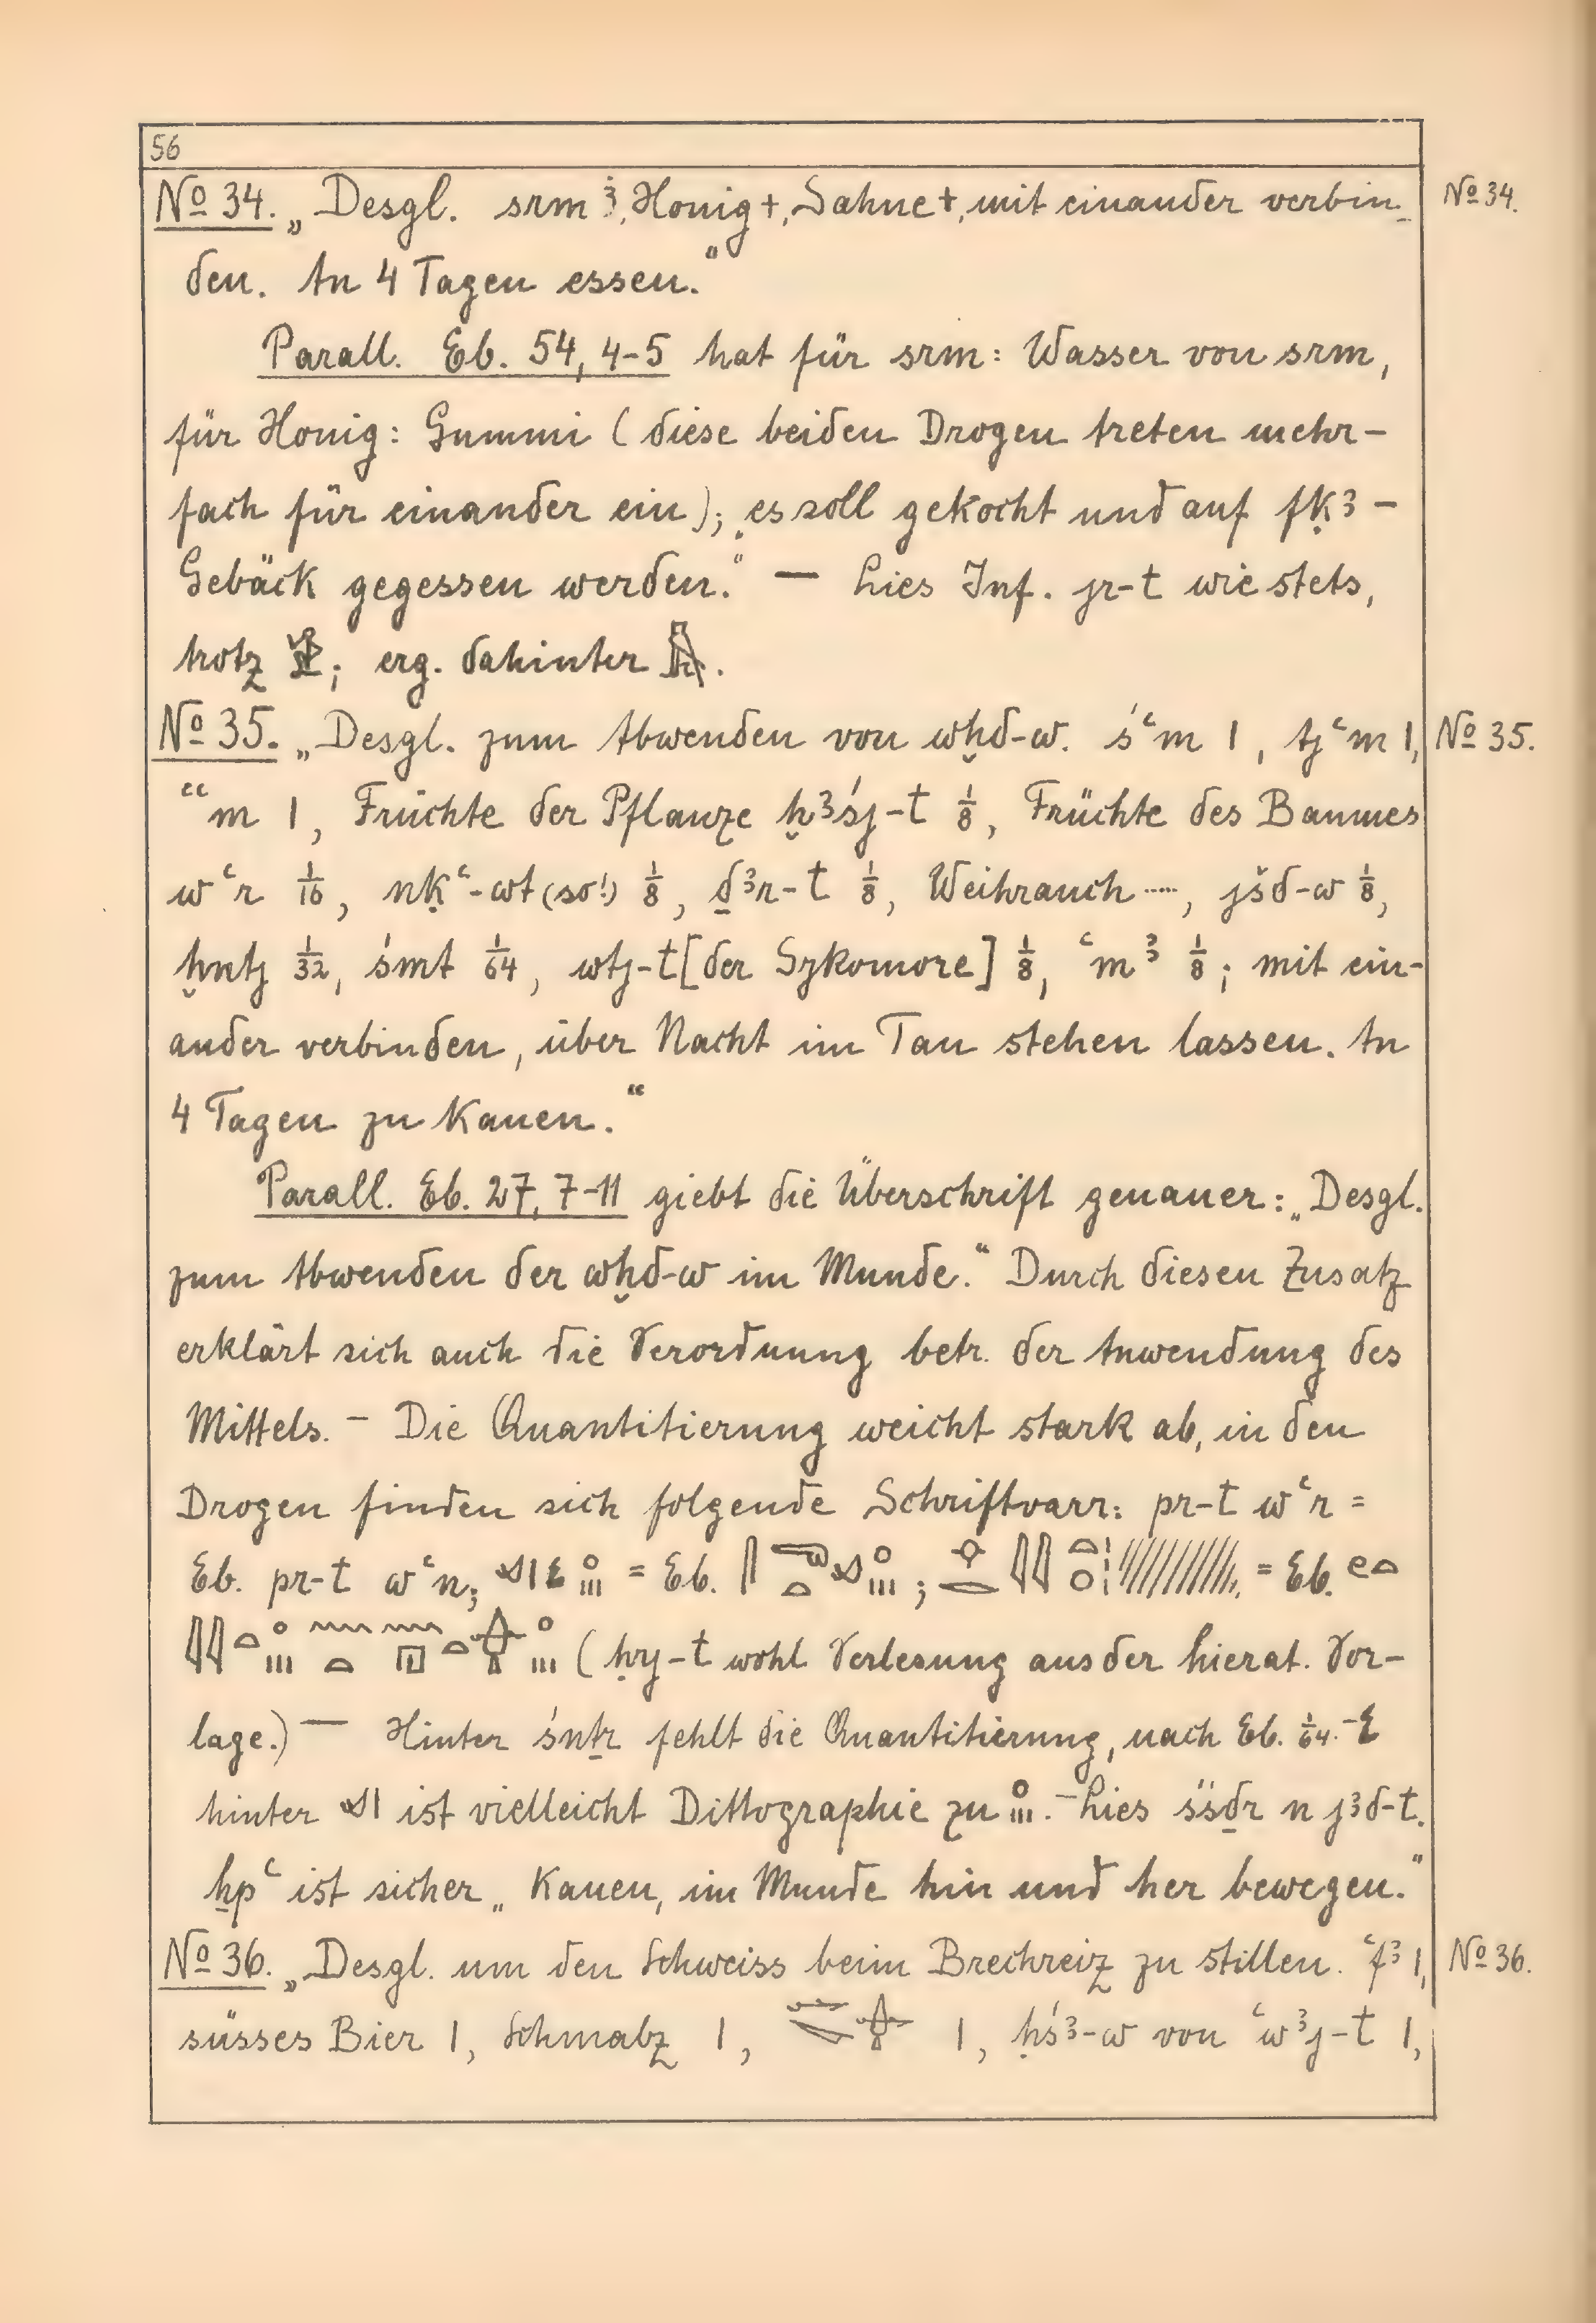 56
No 34. „Desgl. srm ꜣ, Honig +, Sahne +, mit einander verbin-
No 34.
den. An 4 Tagen essen."
Parall. Eb. 54, 4-5 hat für srm: Wasser von srm,
für Honig: Gummi (diese beiden Drogen treten mehr-
fach für einander ein); „es soll gekocht und auf fḳꜣ-
Gebäck gegessen werden." — Lies Inf. jr-t wie stets,
trotz ; erg. dahinter .
No 35. „Desgl. zum Abwenden von wḫd-w. śꜥm 1, tjꜥm 1,
No 35.
ꜥꜥm 1, Früchte der Pflanze ḫꜣśj-t 1/8, Früchte des Baumes
wꜥr 1/16, nḳꜥ-wt (so!) 1/8, ḏꜣr-t 1/8, Weihrauch ....., jšd-w 1/8,
ḫntj 1/32, śmt 1/64, wtj-t [der Sykomore] 1/8, ꜥmꜣ 1/8; mit ein-
ander verbinden, über Nacht im Tau stehen lassen. An
4 Tagen zu kauen."
Parall. Eb. 27, 7-11 giebt die Überschrift genauer: „Desgl.
zum Abwenden der wḫd-w im Munde." Durch diesen Zusatz
erklärt sich auch die Verordnung betr. der Anwendung des
Mittels. — Die Quantitierung weicht stark ab, in den
Drogen finden sich folgende Schriftvarr: pr-t wꜥr =
Eb. pr-t wꜥn; = Eb. ; = Eb.
(ḥry-t wohl Verlesung aus der hierat. Vor-
lage.) — Hinter śnṯr fehlt die Quantitierung, nach Eb. 1/64. —
hinter ist vielleicht Dittographie zu . — Lies śśḏr n jꜣd-t.
ẖpꜥ ist sicher „kauen, im Munde hin und her bewegen."
No 36. „Desgl. um den Schweiss beim Brechreiz zu stillen. ꜥfꜣ 1,
No 36.
süsses Bier 1, Schmalz 1, 1, ḥśꜣ-w von ꜥwꜣj-t 1,